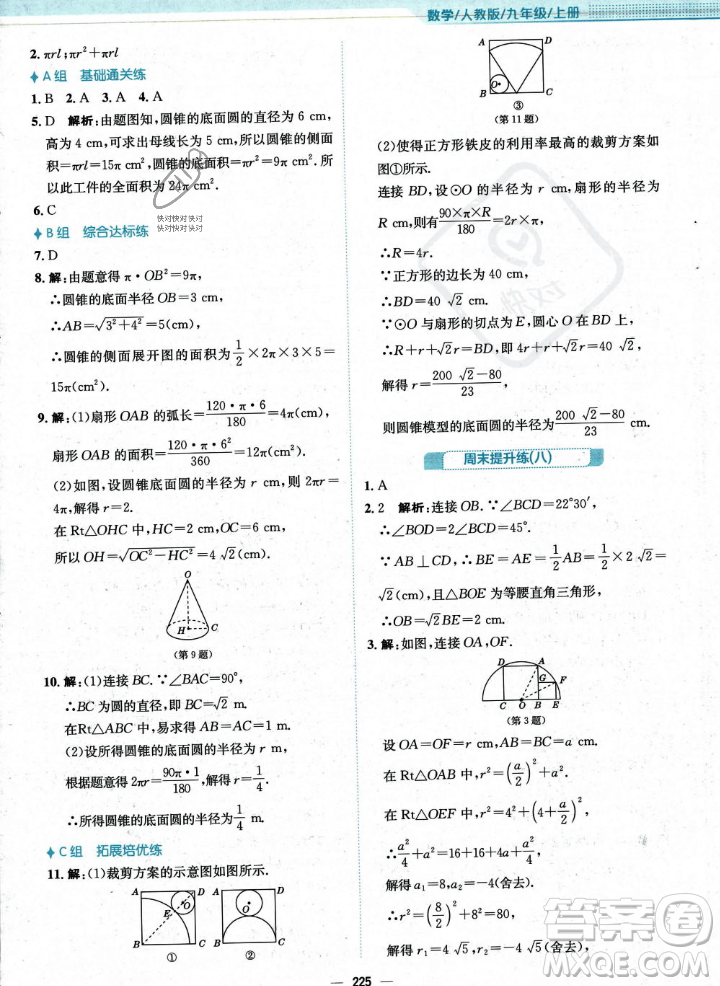 数学/人教版/九年级/上册
2. πrl;πr²+πrl
A组 基础通关练
1. B 2. A 3. A 4. A
5. D 解析:由题意知,圆锥的底面圆的直径为 6 cm,
高为 4 cm,可求出母线长为 5 cm,所以圆锥的侧面
积=πrl=15π cm²,圆锥的底面圆面积=πr²=9π cm².
所以此工件的全面积为 24π cm².
6. C
快对快对快对
快对快对快对
B组 综合达标练
7. D
8. 解:由题意得 π·OB²=9π,
∴圆锥的底面半径 OB=3(cm).
∴AB=√(3²+4²)=5(cm).
∴圆锥的侧面展开图的面积为 1/2×2π×3×5=
15π(cm²).
9. 解:(1)扇形 OAB 的弧长=(120·π·6)/180=4π(cm),
扇形 OAB 的面积=(120·π·6²)/360=12π(cm²).
(2)如图,设圆锥底面圆的半径为 r cm,则 2πr=
4π,解得 r=2.
在 Rt△OHC 中,HC=2 cm,OC=6 cm,
所以 OH=√(OC²-HC²)=4√2(cm).
O
H
C
(第 9 题)
10. 解:(1)连接 BC.∵∠BAC=90°,
∴BC 为圆的直径,即 BC=√2 m.
在Rt△ABC 中,易求得 AB=AC=1 m.
(2)设所得圆锥的底面圆的半径为 r m,
根据题意得 2πr=(90π·1)/180,解得 r=1/4.
∴所得圆锥的底面圆的半径为 1/4 m.
C组 拓展培优练
11. 解:(1)裁剪方案的示意图如图所示.
A D
O
E
B C
①
A D
O
B C
②
A D
O
B C
③
(第 11 题)
(2)使得正方形铁皮的利用率最高的裁剪方案如
图①所示.
连接 BD,设⊙O 的半径为 r cm,扇形的半径为
R cm,则有(90×π×R)/180=2πr,
∴R=4r.
∵正方形的边长为 40 cm,
∴BD=40√2 cm.
∵⊙O 与扇形的切点为 E,圆心 O 在 BD 上,
∴R+r+√2r=BD,即 5r+√2r=40√2,
解得 r=(200√2-80)/23,
则圆锥模型的底面圆的半径为(200√2-80)/23 cm.
周末提升练(八)
1. A
2. 2 解析:连接 OB.∵∠BCD=22°30′,
∴∠BOD=2∠BCD=45°.
∵AB⊥CD,∴BE=AE=1/2AB=1/2×2√2=
√2(cm),且△BOE 为等腰直角三角形,
∴OB=√2BE=2 cm.
3. 解:如图,连接 OA,OF.
D A
G F
C O B E
(第 3 题)
设 OA=OF=r cm,AB=BC=a cm.
在 Rt△OAB 中,r²=(a/2)²+a²,
在 Rt△OEF 中,r²=4²+(4+a/2)²,
∴a²/4+a²=16+16+4a+a²/4,
解得 a₁=8,a₂=-4(舍去).
∴r²=(8/2)²+8²=80,
解得 r₁=4√5,r₂=-4√5(舍去),
225
作业精灵
答案圈
MXQE.COM